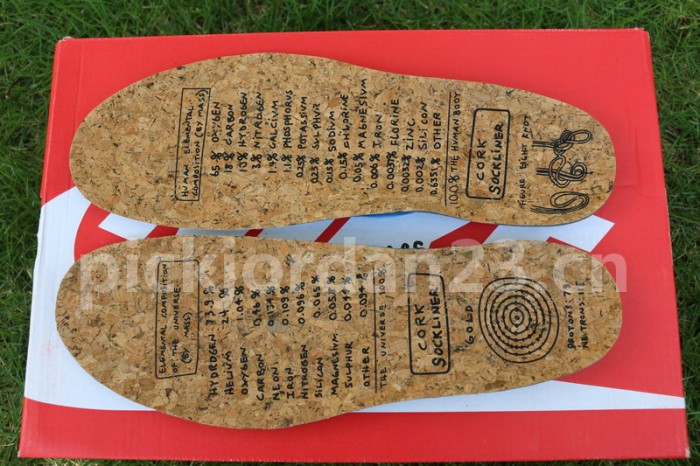 HUMAN ELEMENTAL
COMPOSITION (BY MASS)
65% OXYGEN
18% CARBON
10% HYDROGEN
3% NITROGEN
1.4% CALCIUM
1.1% PHOSPHORUS
0.25% POTASSIUM
0.25% SULPHUR
0.15% SODIUM
0.15% CHLORINE
0.05% MAGNESIUM
0.006% IRON
0.0037% FLORINE
0.0032% ZINC
0.002% SILICON
0.6351% OTHER
100% THE HUMAN BODY
CORK
SOCKLINER
FIGURE EIGHT KNOT
pickjordan23.cn
ELEMENTAL COMPOSITION
OF THE UNIVERSE
(BY MASS)
HYDROGEN 73.9%
HELIUM 24%
OXYGEN 1.04%
CARBON 0.46%
NEON 0.134%
IRON 0.109%
NITROGEN 0.096%
SILICON 0.065%
MAGNESIUM 0.058%
SULPHUR 0.044%
OTHER 0.094%
THE UNIVERSE 100%
CORK
SOCKLINER
GOLD
PROTONS: 79
NEUTRONS: 118